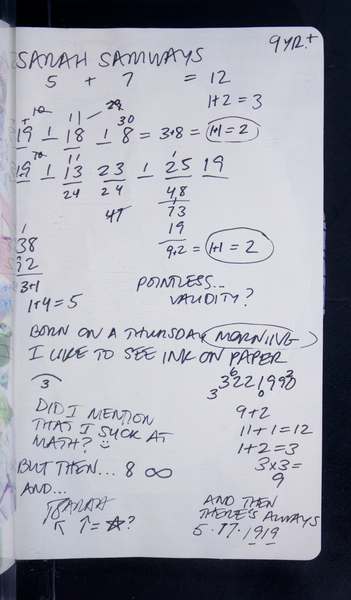 SARAH SAMWAYS
9 YR.+
5 + 7 = 12
1+2 = 3
11
30
19 1 18 1 8 = 3+8 = 1+1 = 2
19 1 13 23 1 25 19
24 24 48
47 73
19
92 = 1+1 = 2
38
92
3+1
1+4=5
POINTLESS...
VALIDITY?
BORN ON A THURSDAY (MORNING)
I LIKE TO SEE INK ON PAPER
3
DID I MENTION
THAT I SUCK AT
MATH?
BUT THEN... 8 ∞
AND...
9+2
11+1=12
1+2=3
3x3=
9
AND THEN
THERE'S ALWAYS
5.17.1919